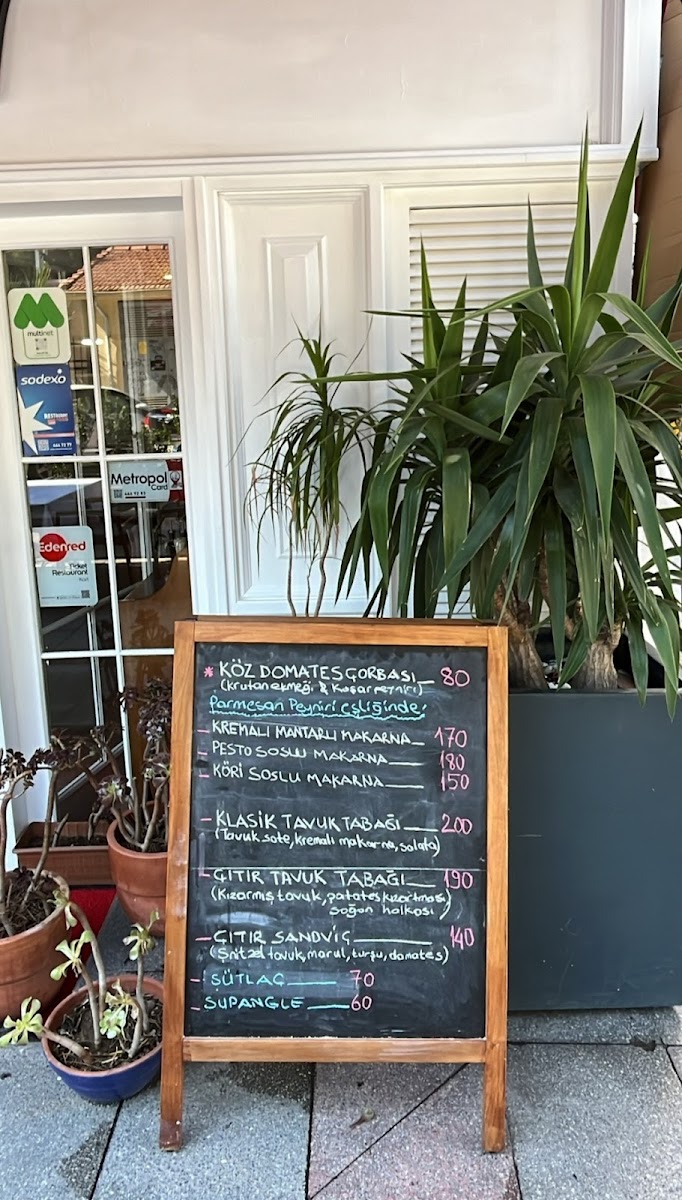 multinet
sodexo
444 73 77
Metropol
Card
Edenred
Ticket
Restaurant
* KÖZ DOMATES ÇORBASI 80
(krutonekmeği & Kaşar peyniri)
Parmesan Peyniri eşliğinde:
- KREMALI MANTARLI MAKARNA 170
- PESTO SOSLU MAKARNA 180
- KÖRİ SOSLU MAKARNA 150
- KLASİK TAVUK TABAĞI 200
(Tavuk sote, kremalı makarna, salata)
- ÇITIR TAVUK TABAĞI 190
(Kızarmış tavuk, patates kızartması
soğan halkası)
- ÇITIR SANDVİÇ 140
(Şnitzel tavuk, marul, turşu, domates)
- SÜTLAÇ 70
- SUPANGLE 60